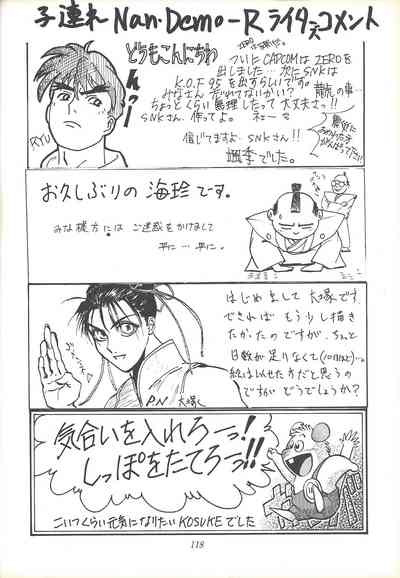 子連れ Nan·Demo-R ライターズコメント
どうもこんにちわ
ついにCAPCOMはZEROを
出しました…次にSNKは
K.O.F 95を出すらしいです。
みなさん
ちょっとくらい無理したって大丈夫さ。!!
SNKさん、作ってよ。ネェーマ
信じてますよ…SNKさん!!
颯季でした。
ん?ー
RYU
お久しぶりの 海珍です。
みな様方には ご迷惑をかけまして
平に … 平に。
はじめまして 大塚です
できれば もう少し描き
たかったのですが、ちゃんと
日数が足りなくて
絵はいせたすだと思うの
ですが どうでしょうか?
P.N 大塚
気合いを入れろーっ!
しっぽをたてろーっ!!
こいつくらい元気になりたい KOSUKEでした
118